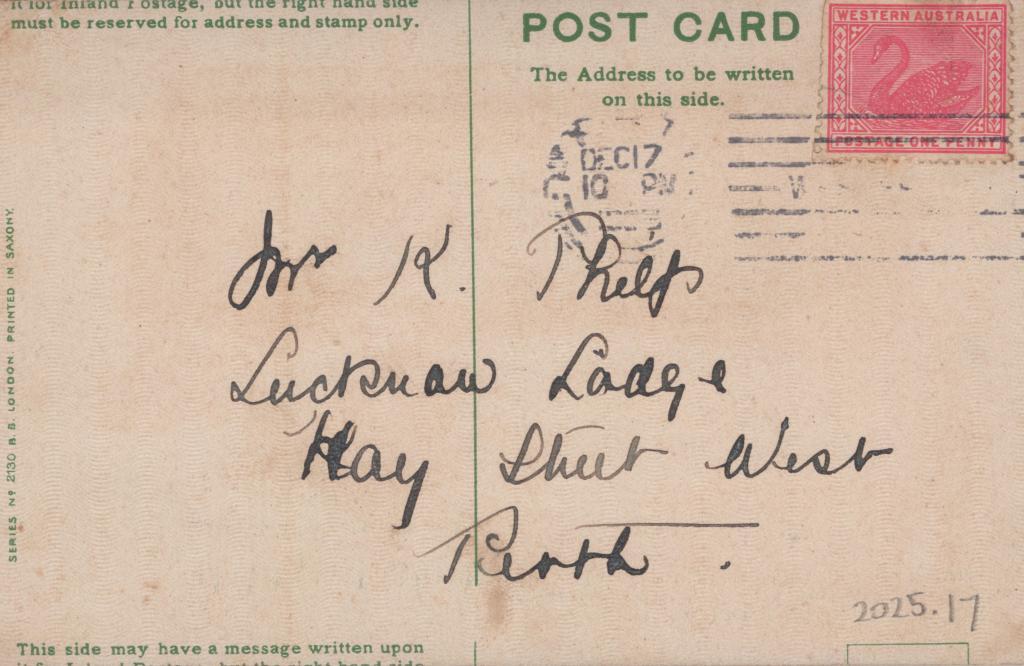 it for Inland Postage, but the right hand side
must be reserved for address and stamp only.
POST CARD
The Address to be written
on this side.
WESTERN AUSTRALIA
POSTAGE ONE PENNY
DEC 17
10 PM
W
Mr K. Phelps
Lucknow Lodge
Hay Street West
Perth.
SERIES Nº 2130 B. B. LONDON. PRINTED IN SAXONY.
2025.17
This side may have a message written upon
it for Inland Postage, but the right hand side